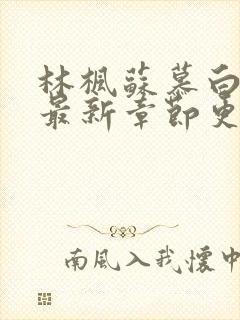 林楓蘇慕白
最新章節更
南風入我懷中